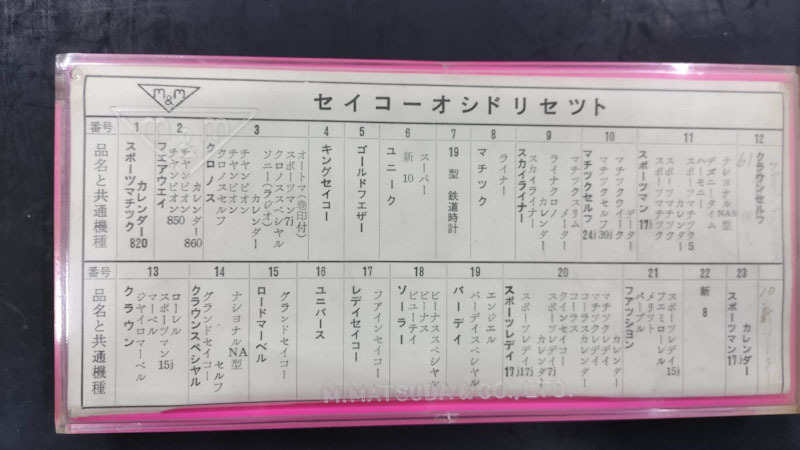 M&M
セイコーオシドリセット
番号 1 2 3 4 5 6 7 8 9 10 11 12
品名と共通機種
スポーツマチック
カレンダー820
フェアウエイ
チャンピオン850
チャンピオン
カレンダー860
クロノス
クロノスセルフ
チャンピオン
チャンピオン
カレンダー
ソニー(ラジオ)
クロノススペシャル
スポーツマン7j
オートマ(巻印付)
キングセイコー
ゴールドフェザー
ユニーク
新10
スーパー
19型 鉄道時計
マチック
ライナー
スカイライナー
スカイライナー
カレンダー
ライナクロノ
メーター
マチックスリム
マチックセルフ24j
マチックセルフ39j
マチックウイーク
データー
スポーツマン17j
スポーツマチック
スポーツマチック
カレンダー
スポーツマチック5
ハーモニー
デズニータイム
ナショナルNAS型
クラウンセルフ
番号 13 14 15 16 17 18 19 20 21 22 23
品名と共通機種
クラウン
ジヤイロマーベル
マーベル
スポーツマン15j
ローレル
クラウンスペシャル
グランドセイコー
セルフ
ナショナルNA型
ロードマーベル
グランドセイコー
ユニバース
レデイセイコー
ファインセイコー
ソーラー
ビューティ
ビーナス
ビーナススペシャル
バーディ
バーディスペシャル
エンジェル
スポーツレデイ17j
スポーツレデイ17j
カレンダー
クインセイコー
コーラス
コーラスカレンダー
マチックレデイ
マチックレデイ
カレンダー
ファツション
パープル
メリット
フエミローレル
スポーツレデイ15j
新8
スポーツマン17j
カレンダー
M.MATSUDA & CO., LTD.